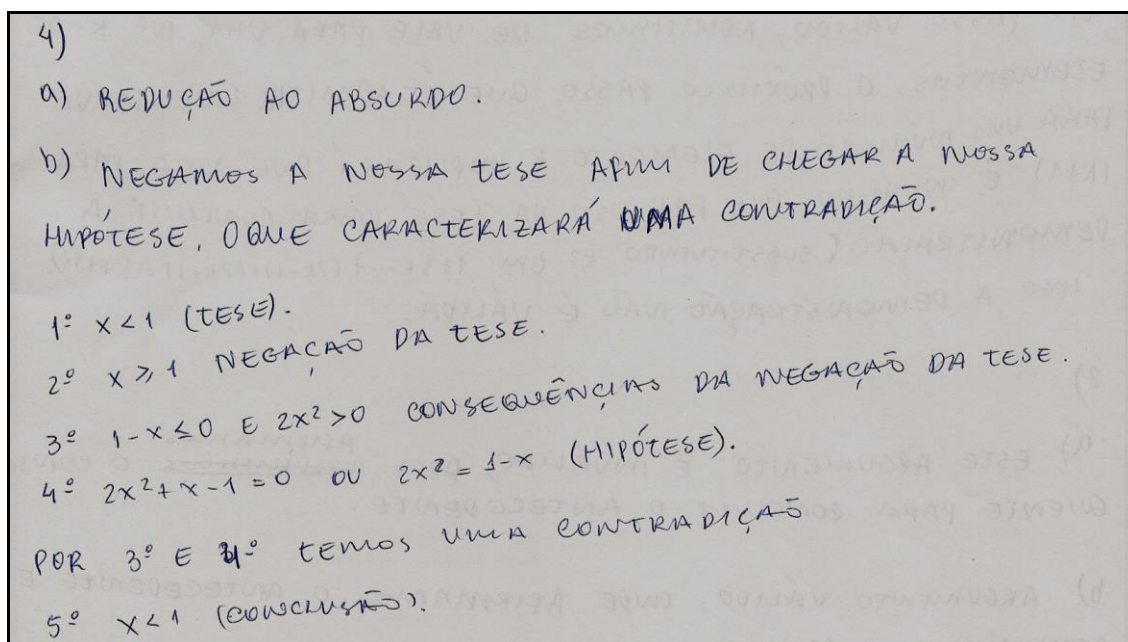 4)
a) REDUÇÃO AO ABSURDO.
b) NEGAMOS A NOSSA TESE AFIM DE CHEGAR A NOSSA
HIPÓTESE, O QUE CARACTERIZARÁ UMA CONTRADIÇÃO.
1º x < 1 (TESE).
2º x ⩾ 1 NEGAÇÃO DA TESE.
3º 1-x ≤ 0 E 2x² > 0 CONSEQUÊNCIAS DA NEGAÇÃO DA TESE.
4º 2x² + x - 1 = 0 OU 2x² = 1-x (HIPÓTESE).
POR 3º E 4º TEMOS UMA CONTRADIÇÃO
5º x < 1 (CONCLUSÃO).